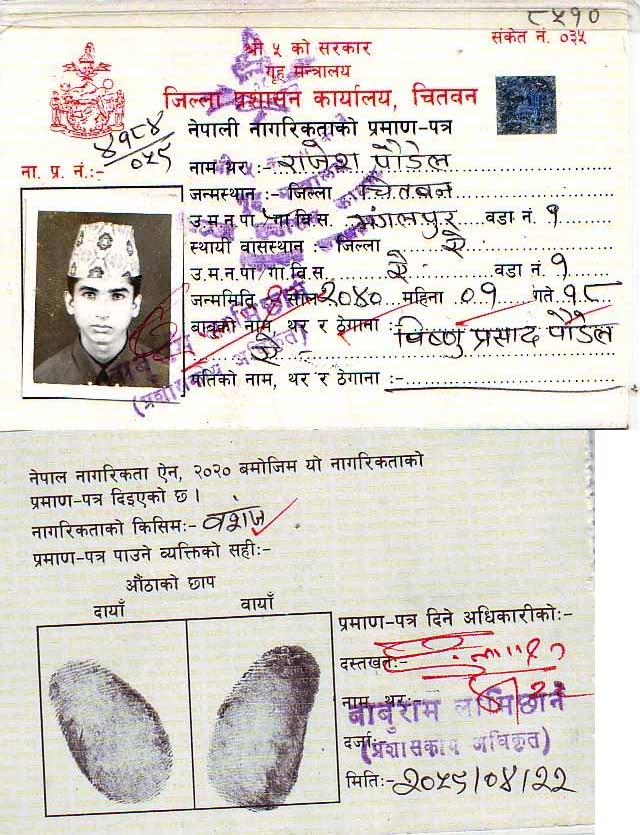 ८५१०
संकेत नं. ०३५
श्री ५ को सरकार
गृह मन्त्रालय
जिल्ला प्रशासन कार्यालय, चितवन
नेपाली नागरिकताको प्रमाण-पत्र
ना. प्र. नं.:- ४१८४/०५५
नाम थर :- राजेश पौडेल
जन्मस्थान :- जिल्ला चितवन
उ.म.न.पा/गा.वि.स. मंगलपुर वडा नं. १
स्थायी वासस्थान :- जिल्ला ऐ
उ.म.न.पा/गा.वि.स. ऐ वडा नं. १
जन्ममिति :- साल २०४० महिना ०१ गते १८
बाबुको नाम, थर र ठेगाना : विष्णु प्रसाद पौडेल
ऐ -
पतिको नाम, थर र ठेगाना :-
(प्रशासकीय अधिकृत)
नेपाल नागरिकता ऐन, २०२० बमोजिम यो नागरिकताको
प्रमाण-पत्र दिइएको छ ।
नागरिकताको किसिम:- वंशज
प्रमाण-पत्र पाउने व्यक्तिको सही:-
औंठाको छाप
दायाँ बायाँ
प्रमाण-पत्र दिने अधिकारीको:-
दस्तखत:-
नाम थर:- बाबुराम लामिछाने
दर्जा:- (प्रशासकीय अधिकृत)
मिति:- २०५५/०४/२२